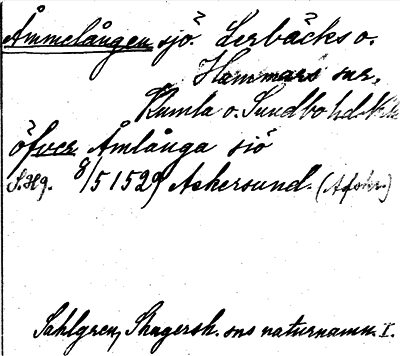 Åmmelången sjö. Lerbäcks o.
Hammars snr,
Kumla o. Sundbo hd
öfver Åmlånga siö
S. Hg. 8/5 1529 Askersund. (Afskr.)
Sahlgren, Skagersh. sns naturnamn. I.